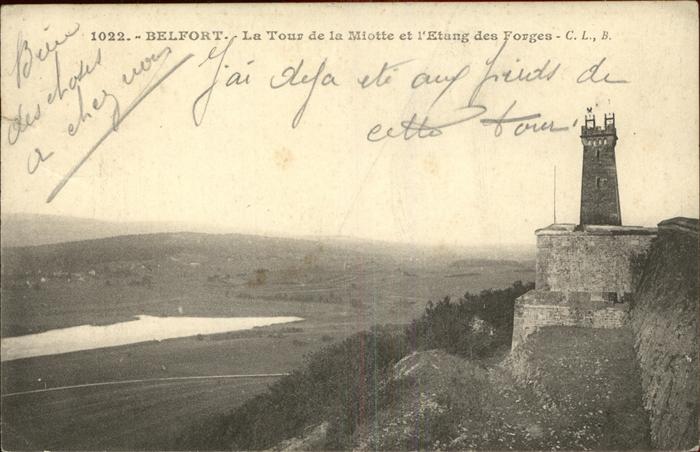 1022. - BELFORT. - La Tour de la Miotte et l'Etang des Forges - C. L., B.
Bien
des choses
a chez vous
j'ai deja ete aux pieds de
cette tour